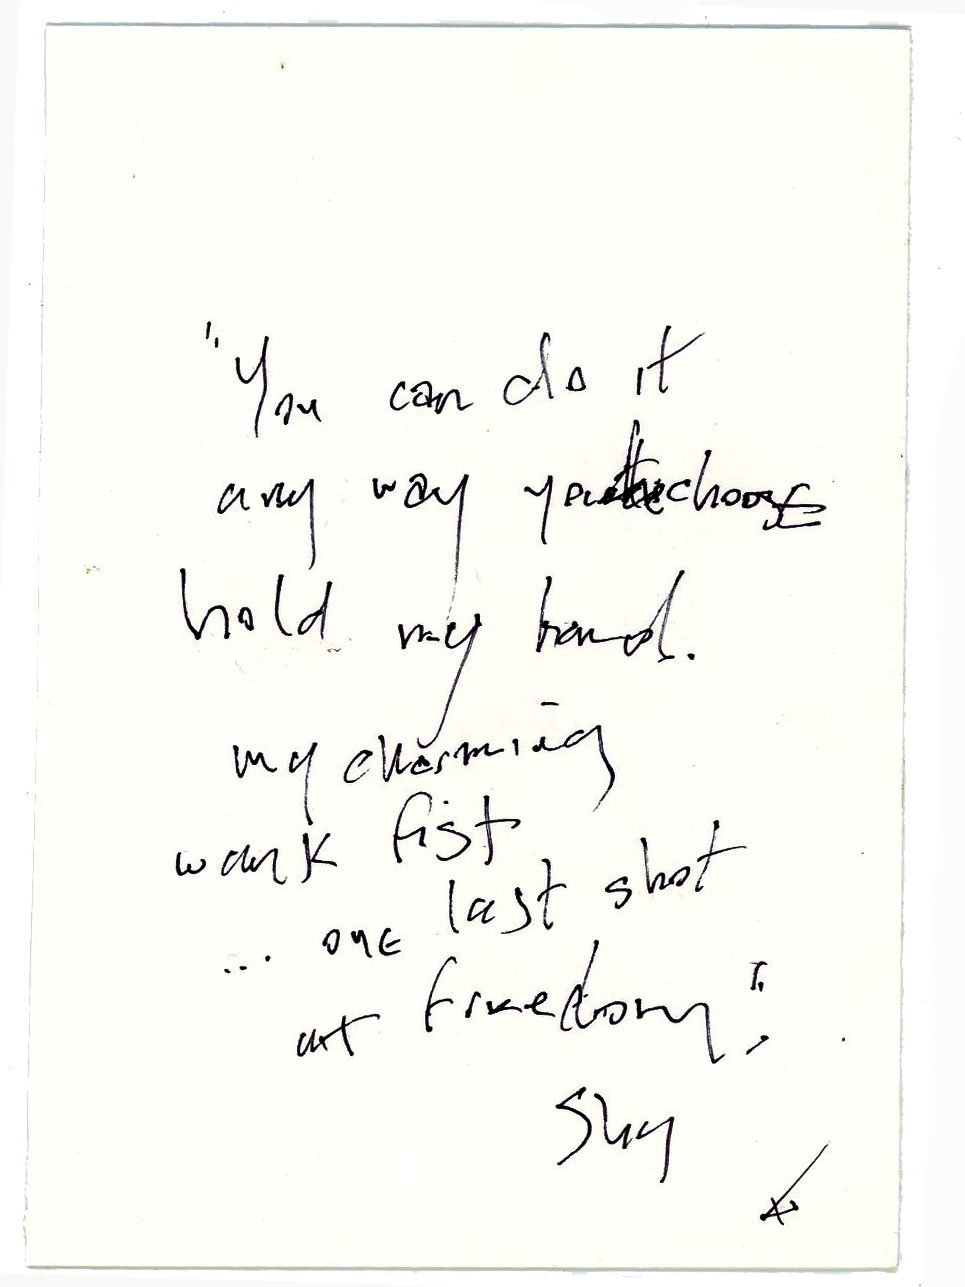 "You can do it
any way you choose
hold my hand.
my charming
wank fist
... one last shot
at freedom",
Shy